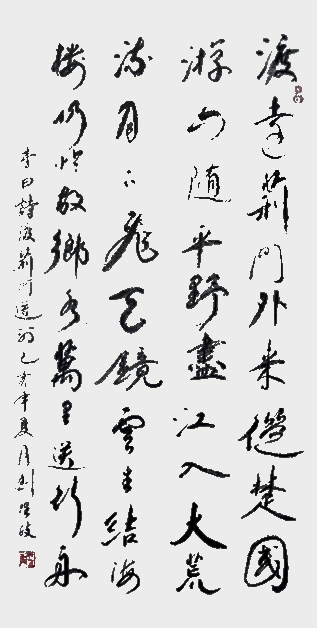 渡遠荆門外来從楚國
游山随平野盡江入大荒
流月下飛天鏡雲生結海
樓仍怜故鄉水萬里送行舟
李白詩渡荆門送别己亥年夏月